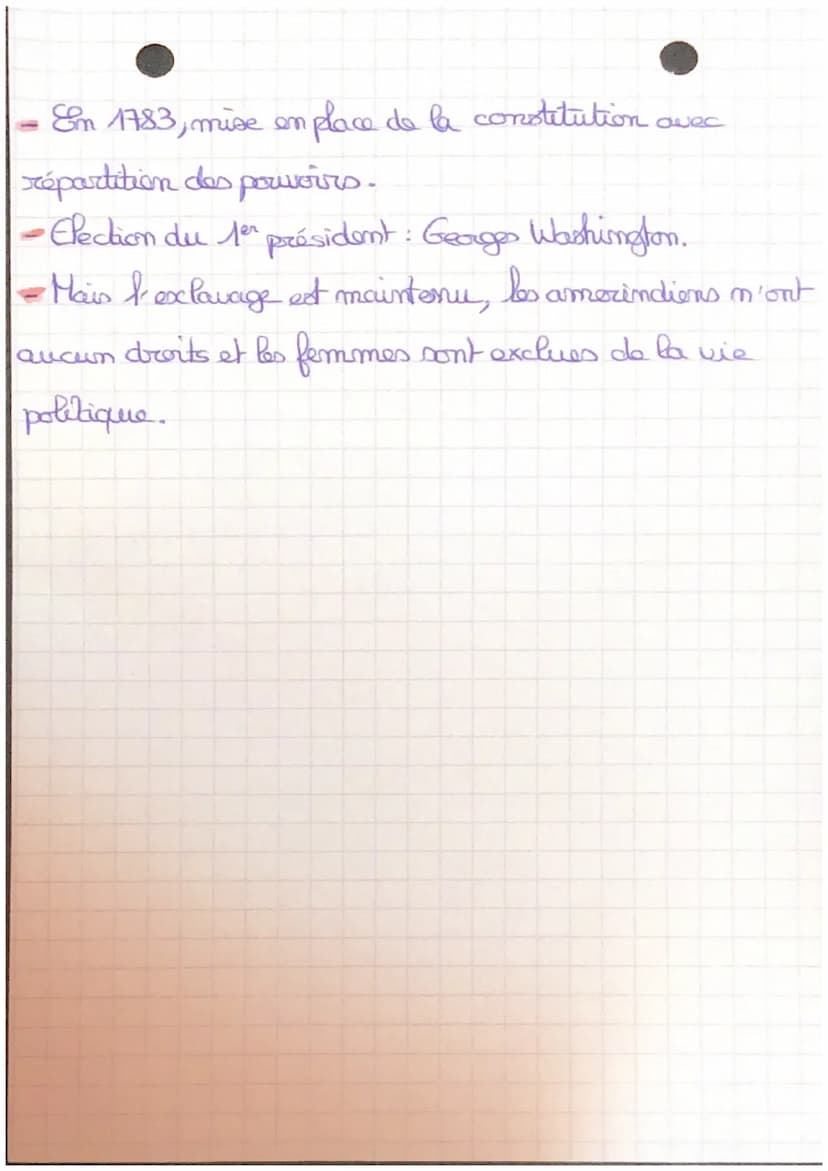 - En 1783, mise en place de la constitution avec
répartition des pouvoirs.
- Election du 1er président : Georges Washington.
- Mais l'exclavage est maintenu, les amerindiens n'ont
aucun droits et les femmes sont exclues de la vie
politique.